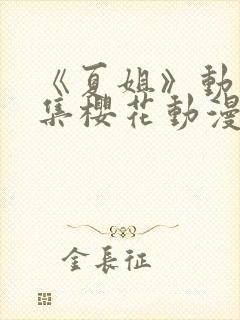 《夏姐》動
集櫻花動漫
金長征